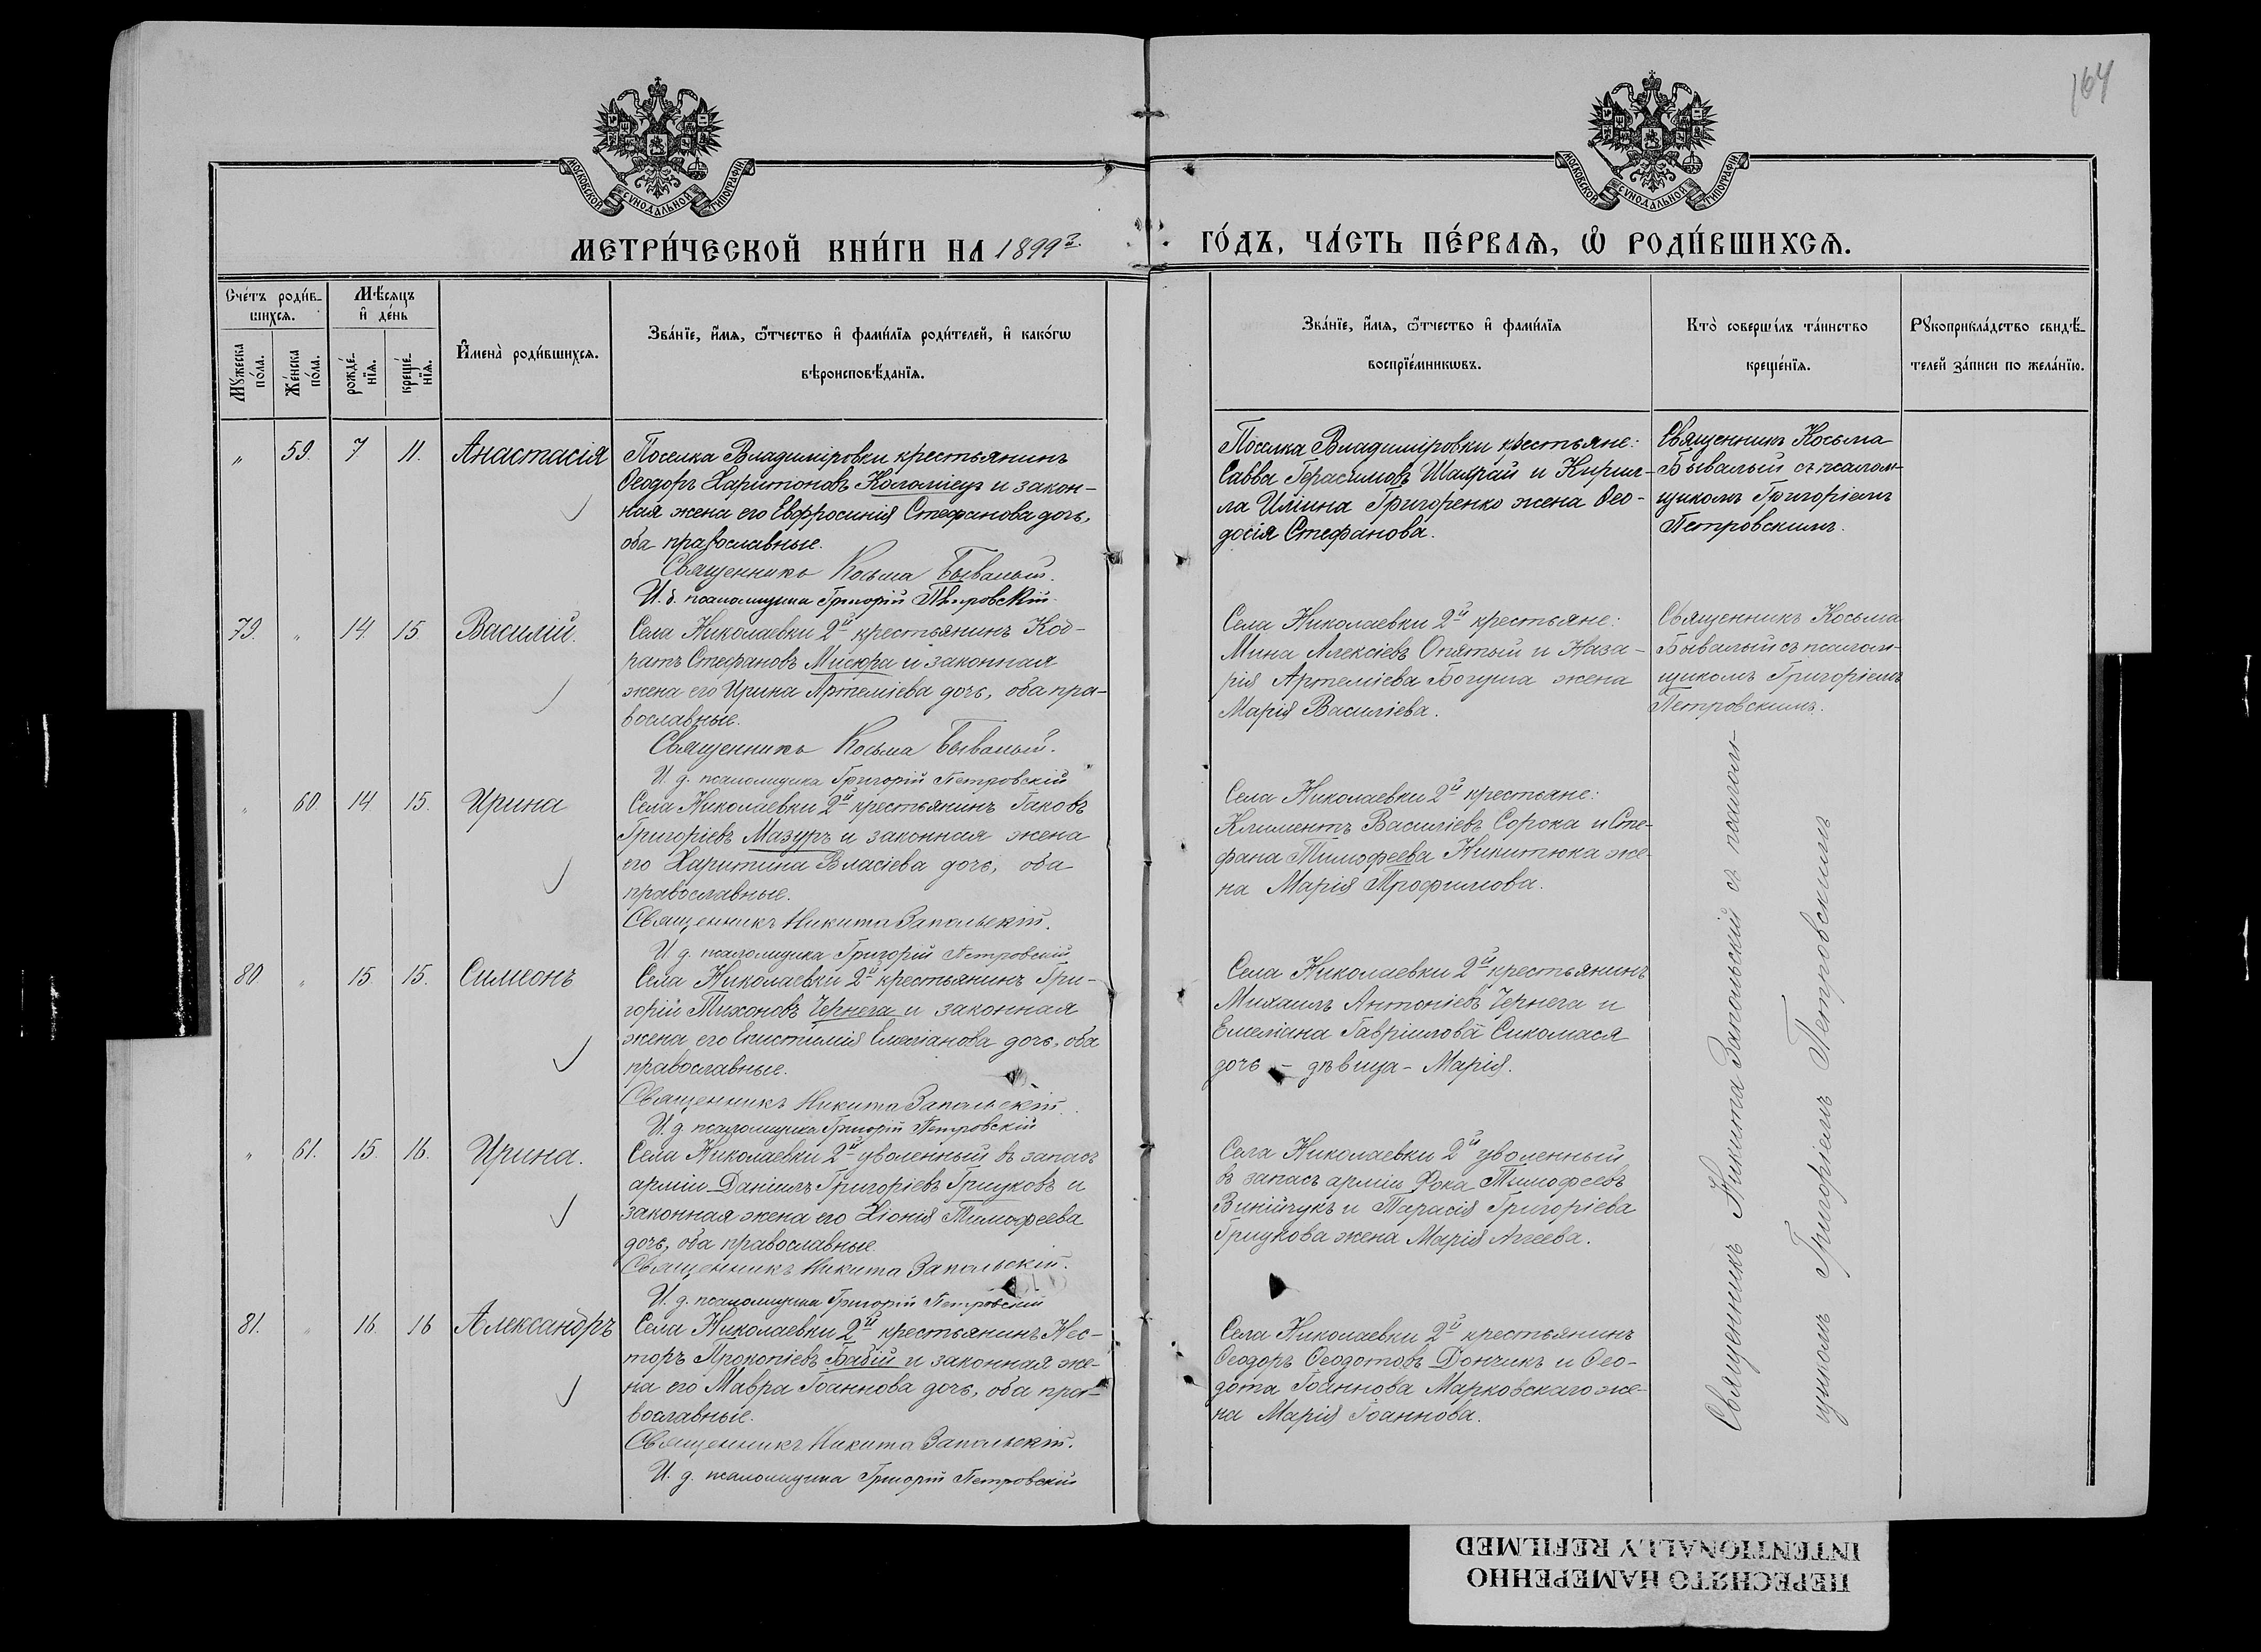 164
МОСКОВСКОЙ СУНОДАЛЬНОЙ ТИПОГРАФІИ
МОСКОВСКОЙ СУНОДАЛЬНОЙ ТИПОГРАФІИ
МЕТРИ́ЧЕСКОЙ КНИ́ГИ НА 1899 г.
ГО́ДЪ, ЧА́СТЬ ПЕ́РВАѦ, Ѡ РОДИ́ВШИХСѦ.
Сче́тъ роди́в-
шихсѧ.
Мѣ́сѧцъ
и҆ де́нь
Мꙋ́жеска
по́ла.
Же́нска
по́ла.
рожде́-
нїѧ.
креще́-
нїѧ.
И҆мена̀ роди́вшихсѧ.
Зва́нїе, и҆́мѧ, ѻ҆́тчество и҆ фами́лїѧ роди́телей, и҆ како́гѡ
вѣроисповѣ́данїѧ.
Зва́нїе, и҆́мѧ, ѻ҆́тчество и҆ фами́лїѧ
воспрїе́мникѡвъ.
Кто̀ соверши́лъ та́инство
креще́нїѧ.
Рꙋкоприкла́дство свидѣ́-
телей за́писи по жела́нїю.
" 59. 7 11. Анастасія
Поселка Владиміровки крестьянинъ
Ѳеодоръ Харитоновъ Коломіецъ и закон-
ная жена его Евфросинія Стефанова дочь,
оба православные.
Священникъ Косьма Бывалый.
И. д. псаломщика Григорій Петровскій
Поселка Владиміровки крестьяне:
Савва Герасимовъ Шамрай и Кирил-
ла Иліина Григоренко жена Ѳео-
досія Стефанова.
Священникъ Косьма
Бывалый съ псалом-
щикомъ Григоріемъ
Петровскимъ.
79. " 14. 15. Василій.
Села Николаевки 2й крестьянинъ Код-
ратъ Стефановъ Мисюра и законная
жена его Ирина Артеміева дочь, оба пра-
вославные.
Священникъ Косьма Бывалый.
И. д. псаломщика Григорій Петровскій
Села Николаевки 2й крестьяне:
Мина Алексіевъ Опятый и Наза-
рія Артеміева Богуша жена
Марія Василіева.
Священникъ Косьма
Бывалый съ псалом-
щикомъ Григоріемъ
Петровскимъ.
" 60. 14 15. Ирина
Села Николаевки 2й крестьянинъ Іаковъ
Григоріевъ Мазуръ и законная жена
его Харитина Власіева дочь, оба
православные.
Священникъ Никита Запольскій.
И. д. псаломщика Григорій Петровскій
Села Николаевки 2й крестьяне:
Климентъ Василіевъ Сорока и Сте-
фана Тимофеева Никитюка же-
на Марія Трофимова.
80 " 15. 15. Симеонъ
Села Николаевки 2й крестьянинъ Гри-
горій Тихоновъ Чернега и законная
жена его Епистимія Емеліанова дочь, оба
православные.
Священникъ Никита Запольскій.
И. д. псаломщика Григорій Петровскій
Села Николаевки 2й крестьянинъ
Михаилъ Антоніевъ Чернега и
Емеліана Гавріилова Сикомася
дочь - дѣвица - Марія.
" 61. 15. 16. Ирина.
Села Николаевки 2й уволенный въ запасъ
арміи Даніилъ Григоріевъ Грицковъ и
законная жена его Хіонія Тимофеева
дочь, оба православные.
Священникъ Никита Запольскій.
И. д. псаломщика Григорій Петровскій
Села Николаевки 2й уволенный
въ запасъ арміи Фока Тимофеевъ
Винійчукъ и Тарасія Григоріева
Грицкова жена Марія Аггеева.
81. " 16. 16 Александръ
Села Николаевки 2й крестьянинъ Нес-
торъ Прокопіевъ Бабій и законная же-
на его Мавра Іоаннова дочь, оба пра-
вославные.
Священникъ Никита Запольскій.
И. д. псаломщика Григорій Петровскій
Села Николаевки 2й крестьянинъ
Ѳеодоръ Ѳеодотовъ Дончикъ и Ѳео-
дота Іоаннова Марковскаго же-
на Марія Іоаннова.
Священникъ Никита Запольскій съ псалом-
щикомъ Григоріемъ Петровскимъ
ПЕРЕСНЯТО НАМЕРЕННО
INTENTIONALLY REFILMED